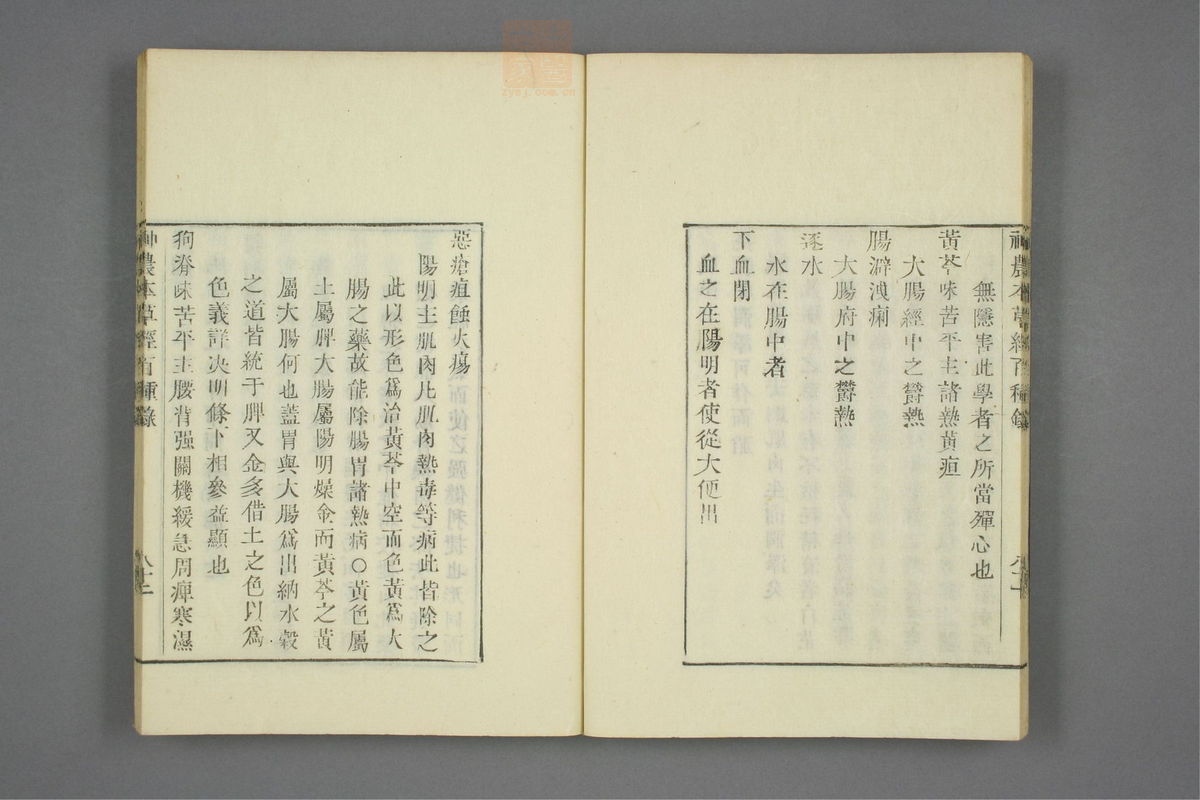 神農本草經百種錄
八十一
無隱害此學者之所當殫心也
黃芩味苦平主諸熱黃疸
大腸經中之鬱熱
腸澼洩痢
大腸府中之鬱熱
逐水
水在腸中者
下血閉
血之在陽明者使從大便出
惡瘡疽蝕火瘍
陽明主肌肉凡肌肉熱毒等病此皆除之
此以形色爲治黃芩中空而色黃爲大
腸之藥故能除腸胃諸熱病○黃色屬
土屬脾大腸屬陽明燥金而黃芩之黃
屬大腸何也蓋胃與大腸爲出納水穀
之道皆統于脾又金多借土之色以爲
色義詳決明條下相參益顯也
狗脊味苦平主腰背强關機緩急周痺寒濕
神農本草經百種錄
八十二
zysj.com.cn